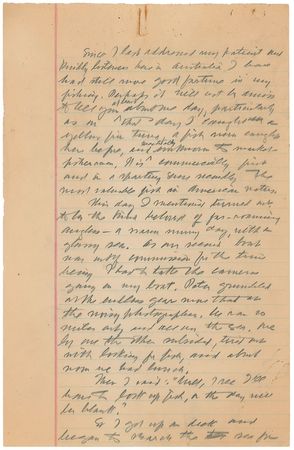 Since I last addressed my patient and
kindly listeners here in Australia I have
had still more good fortune in my
fishing. Perhaps it will not be amiss
to tell you about one day, particularly
as on that day I caught a
yellow fin tuna, a fish never caught
here before, and unknown to market
fishermen. It is commercially first
and in a sporting sense secondly the
most valuable fish in American waters.
This day I mentioned turned out
to be the kind beloved of far-roaming
anglers — a warm sunny day, with a
glassy sea. As our second boat
was out of commission for the time
being I had to take the camera
gang on my boat. Peter grumbled
at the endless gear more than at
the noisy photographers. We ran
miles out and all
one after the other subsided, tired out
with looking for fish, and about
noon we had lunch.
Then I said: "Well, I see I'll
have to look up fish, or the day will
be blank."
So I got up on deck and
began to search the sea for